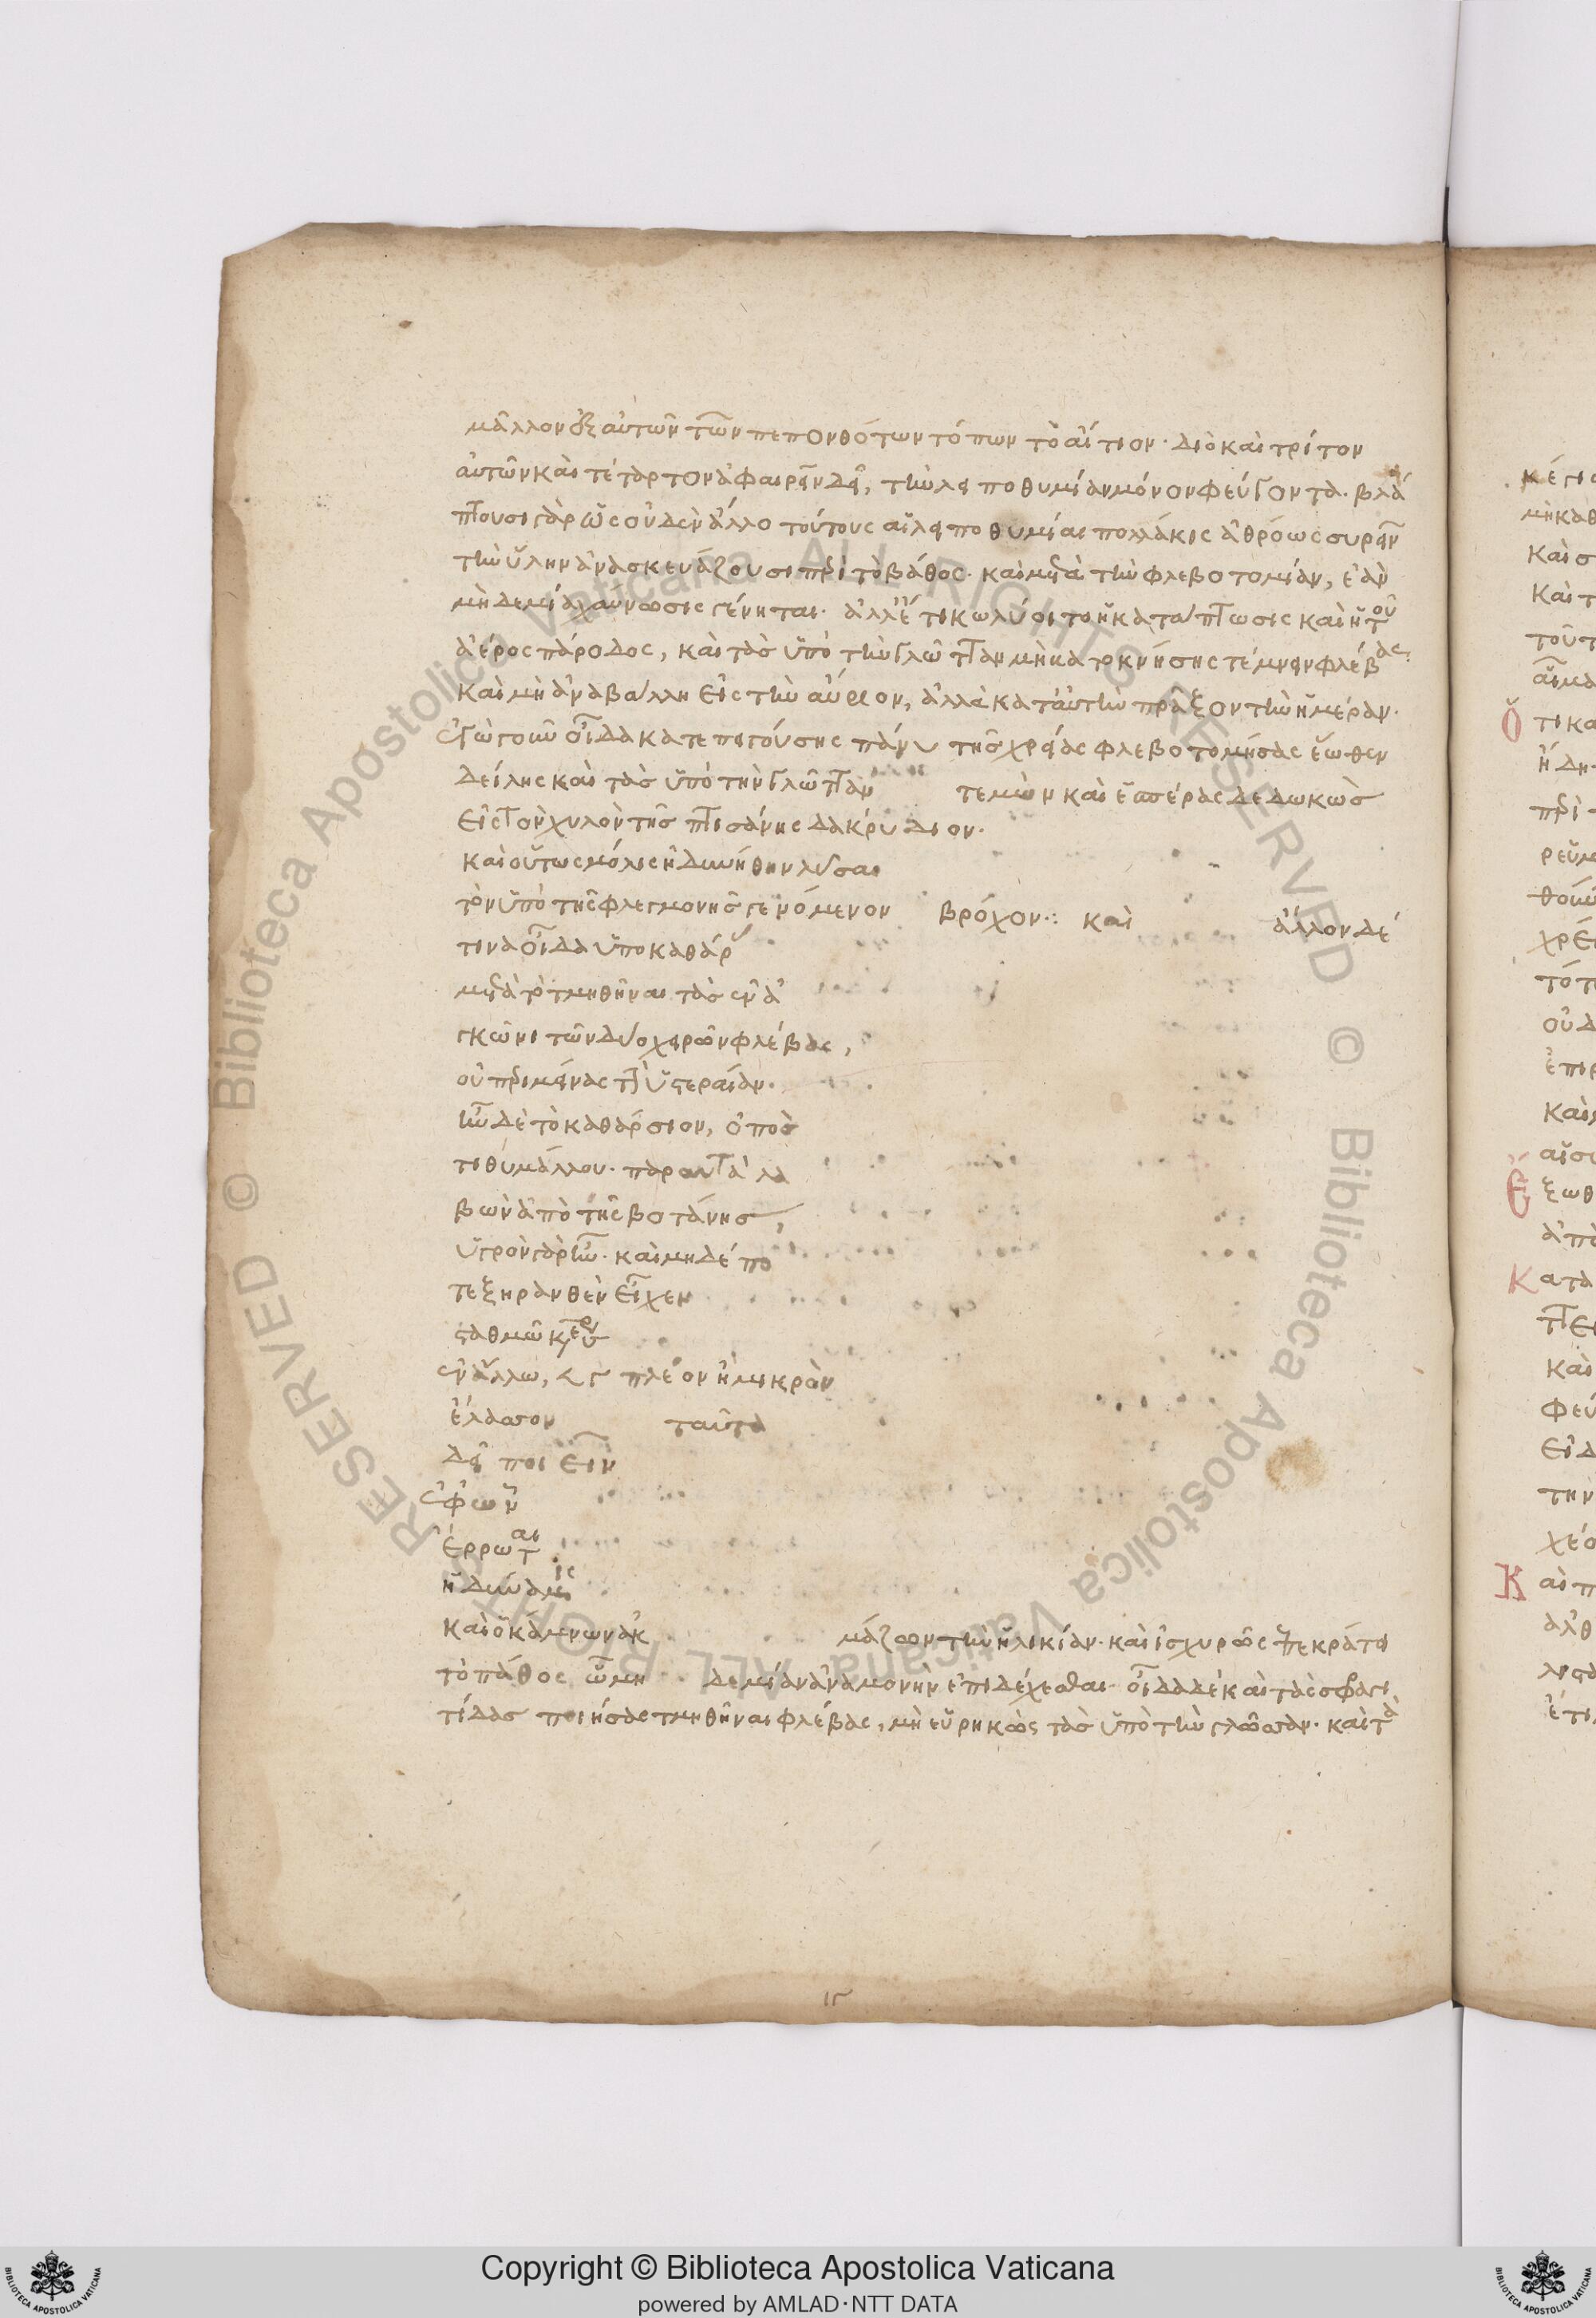 μᾶλλον ἐξ αὐτῶν τῶν πεπονθότων τόπων τὸ αἴτιον· διὸ καὶ τρίτον
αὐτῶν καὶ τέταρτον ἀφαιρεῖν δεῖ, τὴν λειποθυμίαν μόνον φεύγοντα· βλά
πτουσι γὰρ ὡς οὐδὲν ἄλλο τούτους αἱ λειποθυμίαι πολλάκις ἀθρόως συρεῖν
τὴν ὕλην ἀνασκευάζουσι περὶ τὸ βάθος· καὶ μετὰ τὴν φλεβοτομίαν, ἐὰν
μηδεμία χαύνωσις γένηται· ἀλλ' ἔτι κωλύοιτο ἡ κατάπτωσις καὶ ἡ τοῦ
ἀέρος πάροδος, καὶ τὰς ὑπὸ τὴν γλῶτταν μὴ κατοκνήσῃς τέμνειν φλέβας·
καὶ μὴ ἀναβάλλῃ εἰς τὴν αὔριον, ἀλλὰ κατ' αὐτὴν πρᾶξον τὴν ἡμέραν·
ἐγὼ γοῦν οἶδα κατεπειγούσης πάνυ τῆς χρείας φλεβοτομήσας ἕωθεν
δείλης καὶ τὰς ὑπὸ τὴν γλῶτταν τεμὼν καὶ ἑσπέρας δεδωκὼς
εἰς τὸν χυλὸν τῆς πτισάνης δακρύδιον·
καὶ οὕτως μόλις ἠδυνήθην λῦσαι
τὸν ὑπὸ τῆς φλεγμονῆς γενόμενον βρόχον·: καὶ ἄλλον δέ
τινα οἶδα ὑποκαθάρ
μετὰ τὸ τμηθῆναι τὰς ἐν ἀ
γκῶνι τῶν δύο χειρῶν φλέβας,
οὐ περιμείνας τὴν ὑστεραίαν·
ἦν δὲ τὸ καθάρσιον, ὀπὸς
τιθυμάλλου· παραυτὰ λα
βὼν ἀπὸ τῆς βοτάνης,
ὑγρὸν γὰρ ἦν· καὶ μηδέπο
τε ξηρανθὲν εἶχεν
σταθμῶ κερ
ἐν ἄλλω, πλέον ἢ μικρὸν
ἔλασσον ταῦτα
δεῖ ποιεῖν
ἐφ' ὧν
ἔρρωται
ἡ δύναμις
καὶ ὁ κάμνων ἀκμάζων τὴν ἡλικίαν· καὶ ἰσχυρῶς ἐπεκράτει
τὸ πάθος ὡς μηδεμίαν ἀναμονὴν ἐπιδέχεσθαι· οἶδα δὲ καὶ τὰς σφαγι
τίδας ποιήσας τμηθῆναι φλέβας, μὴ εὑρηκὼς τὰς ὑπὸ τὴν γλῶσσαν· καὶ τὰ
Copyright © Biblioteca Apostolica Vaticana
powered by AMLAD·NTT DATA